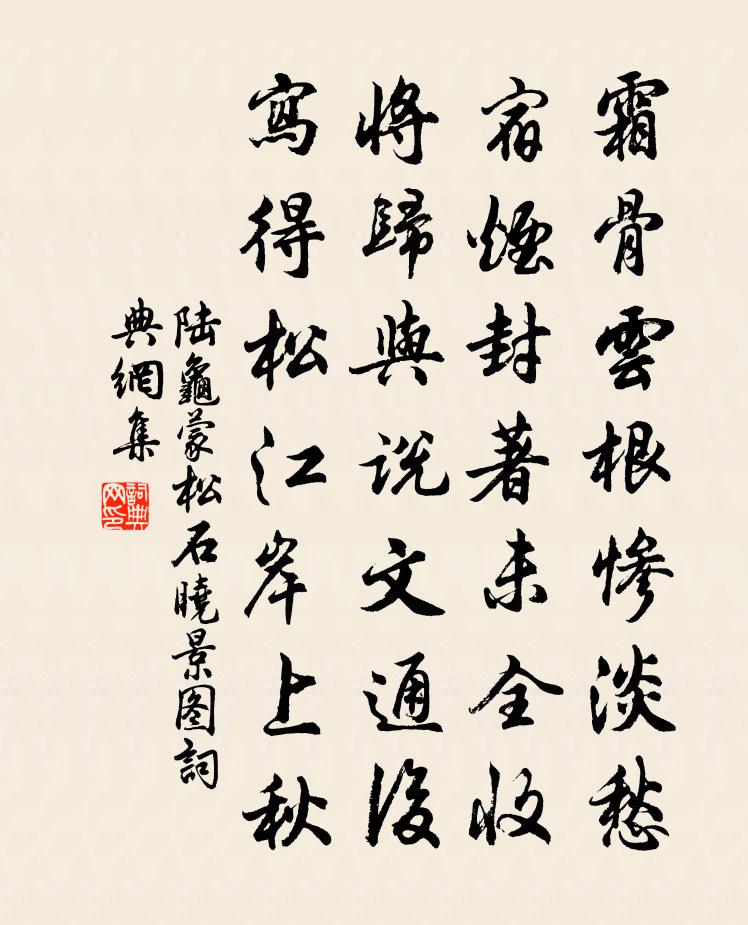 霜骨雲根慘淡愁
宿煙封著未全收
將歸與說文通後
寫得松江岸上秋
陆龜蒙松石曉景图詞
典網集
詞典網印